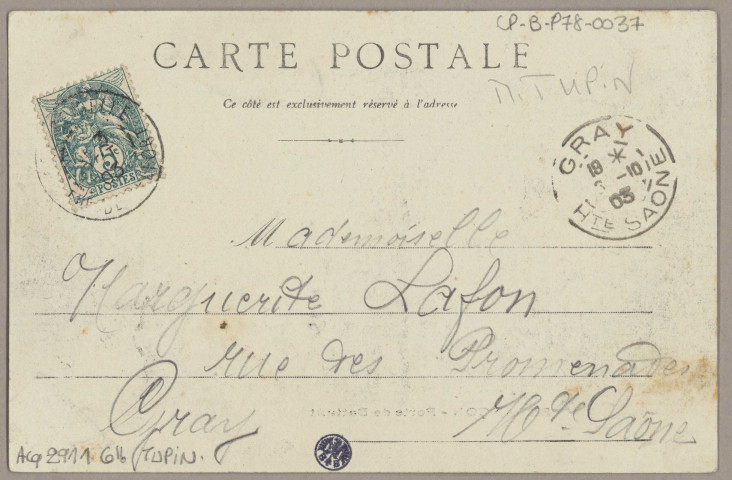 CP-B-P78-0037
CARTE POSTALE
M. TUPIN
Ce côté est exclusivement réservé à l'adresse
5
POSTES
GRAY
18 * 1
-10
03
HTE SAONE
Mademoiselle
Marguerite Lafon
rue des Promenades
Gray Hte Saône
Porte de Battant
Acq 2911 Glb TUPIN.